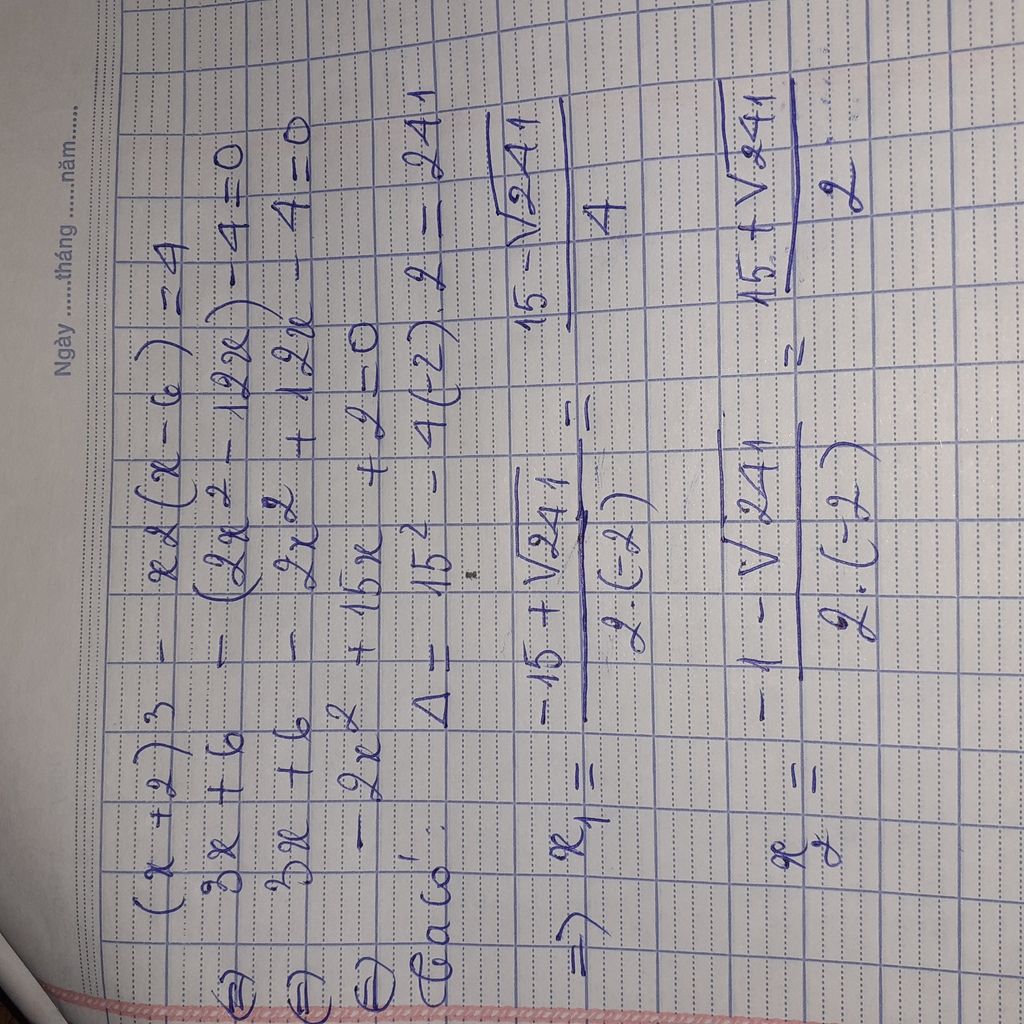 Ngày ......tháng ......năm......
(x + 2) 3 - x2 (x - 6) = 4
⇔ 3x + 6 - (2x² - 12x) - 4 = 0
⇔ 3x + 6 - 2x² + 12x - 4 = 0
⇔ -2x² + 15x + 2 = 0
Ta có: Δ = 15² - 4(-2).2 = 241
⇒ x₁ = (-15 + √241)/(2·(-2)) = (15 - √241)/4
x₂ = (-1 - √241)/(2·(-2)) = (15 + √241)/2